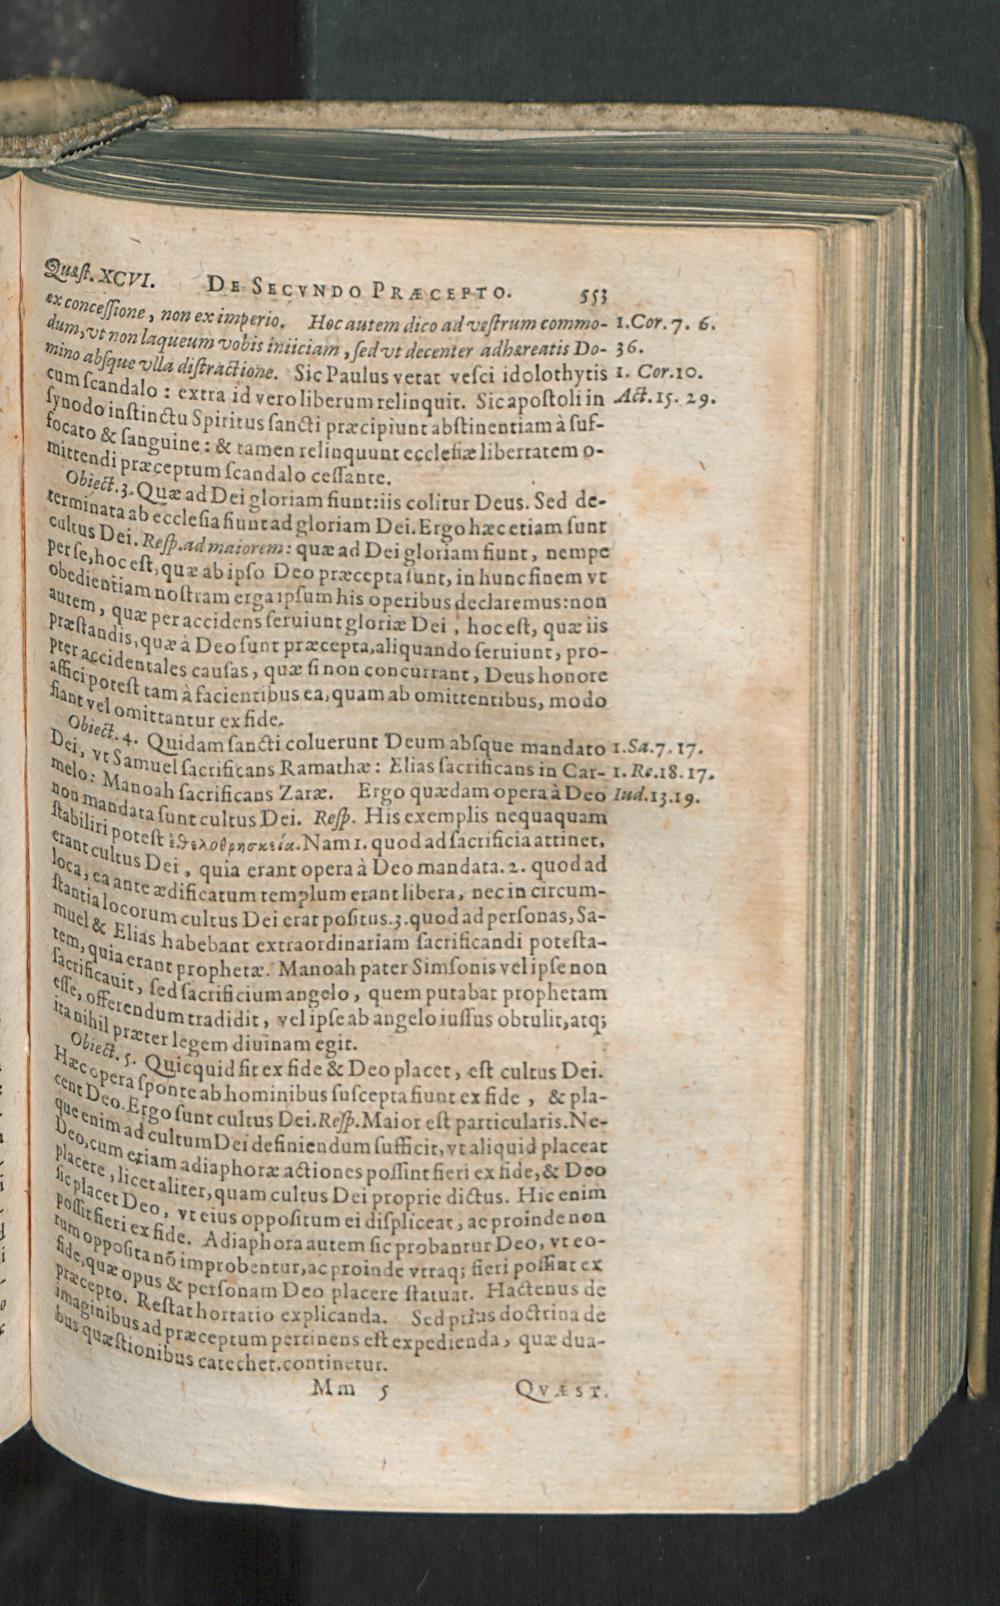 Quæst. XCVI. DE SECVNDO PRÆCEPTO. 553
ex concessione, non ex imperio. Hoc autem dico ad vestrum commo- 1.Cor. 7. 6.
dum, vt non laqueum vobis iniiciam, sed vt decenter adhæreatis Do- 36.
mino absque vlla distractione. Sic Paulus vetat vesci idolothytis 1. Cor.10.
cum scandalo: extra id vero liberum relinquit. Sic apostoli in Act.15. 29.
synodo instinctu Spiritus sancti præcipiunt abstinentiam à suf-
focato & sanguine: & tamen relinquunt ecclesiæ libertatem o-
mittendi præceptum scandalo cessante.
Obiect.3. Quæ ad Dei gloriam fiunt: iis colitur Deus. Sed de-
terminata ab ecclesia fiunt ad gloriam Dei. Ergo hæc etiam sunt
cultus Dei. Resp. ad maiorem: quæ ad Dei gloriam fiunt, nempe
per se, hoc est, quæ ab ipso Deo præcepta sunt, in hunc finem vt
obedientiam nostram erga ipsum his operibus declaremus: non
autem, quæ per accidens seruiunt gloriæ Dei, hoc est, quæ iis
præstandis, quæ à Deo sunt præcepta, aliquando seruiunt, pro-
pter accidentales causas, quæ si non concurrant, Deus honore
affici potest tam à facientibus ea, quam ab omittentibus, modo
fiant vel omittantur ex fide.
Obiect. 4. Quidam sancti coluerunt Deum absque mandato 1.Sa.7.17.
Dei, vt Samuel sacrificans Ramathæ: Elias sacrificans in Car- 1. Re.18.17.
melo: Manoah sacrificans Zaræ. Ergo quædam opera à Deo Iud.13.19.
non mandata sunt cultus Dei. Resp. His exemplis nequaquam
stabiliri potest ἐθελοθρησκεία. Nam 1. quod ad sacrificia attinet,
erant cultus Dei, quia erant opera à Deo mandata. 2. quod ad
loca, ea ante ædificatum templum erant libera, nec in circum-
stantia locorum cultus Dei erat positus. 3. quod ad personas, Sa-
muel & Elias habebant extraordinariam sacrificandi potesta-
tem, quia erant prophetæ. Manoah pater Simsonis vel ipse non
sacrificauit, sed sacrificium angelo, quem putabat prophetam
esse, offerendum tradidit, vel ipse ab angelo iussus obtulit, atq;
ita nihil præter legem diuinam egit.
Obiect. 5. Quicquid fit ex fide & Deo placet, est cultus Dei.
Hæc opera sponte ab hominibus suscepta fiunt ex fide, & pla-
cent Deo. Ergo sunt cultus Dei. Resp. Maior est particularis. Ne-
que enim ad cultum Dei definiendum sufficit, vt aliquid placeat
Deo, cum etiam adiaphoræ actiones possint fieri ex fide, & Deo
placere, licet aliter, quam cultus Dei proprie dictus. Hic enim
sic placet Deo, vt eius oppositum ei displiceat, ac proinde non
possit fieri ex fide. Adiaphora autem sic probantur Deo, vt eo-
rum opposita nō improbentur, ac proinde vtraq; fieri possint ex
fide, quæ opus & personam Deo placere statuat. Hactenus de
præcepto. Restat hortatio explicanda. Sed prius doctrina de
imaginibus ad præceptum pertinens est expedienda, quæ dua-
bus quæstionibus catechet. continetur.
Mm 5 QVÆST.